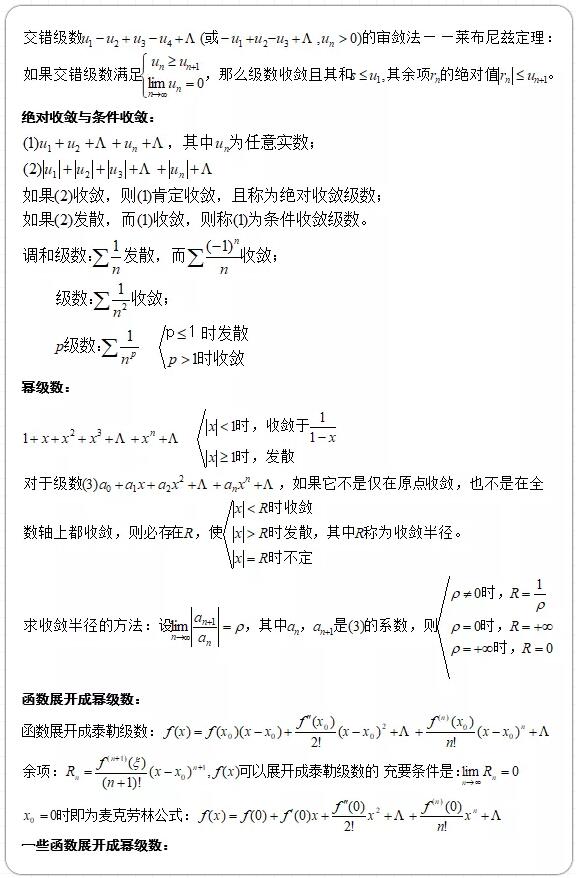 交错级数u₁-u₂+u₃-u₄+Λ (或-u₁+u₂-u₃+Λ ,uₙ>0)的审敛法－－莱布尼兹定理：
如果交错级数满足{uₙ≥uₙ₊₁ lim n→∞ uₙ=0，那么级数收敛且其和s≤u₁,其余项rₙ的绝对值|rₙ|≤uₙ₊₁。
绝对收敛与条件收敛：
(1)u₁+u₂+Λ +uₙ+Λ ，其中uₙ为任意实数；
(2)|u₁|+|u₂|+|u₃|+Λ +|uₙ|+Λ
如果(2)收敛，则(1)肯定收敛，且称为绝对收敛级数；
如果(2)发散，而(1)收敛，则称(1)为条件收敛级数。
调和级数:∑1/n发散，而∑(-1)ⁿ/n收敛；
级数:∑1/n²收敛；
p级数:∑1/nᵖ {p≤1 时发散 p>1时收敛
幂级数：
1+x+x²+x³+Λ +xⁿ+Λ {|x|<1时，收敛于1/(1-x) |x|≥1时，发散
对于级数(3)a₀+a₁x+a₂x²+Λ +aₙxⁿ+Λ ，如果它不是仅在原点收敛，也不是在全
数轴上都收敛，则必存在R，使{|x|<R时收敛 |x|>R时发散，其中R称为收敛半径。 |x|=R时不定
求收敛半径的方法：设lim n→∞ |aₙ₊₁/aₙ|=ρ，其中aₙ，aₙ₊₁是(3)的系数，则{ρ≠0时，R=1/ρ ρ=0时，R=+∞ ρ=+∞时，R=0
函数展开成幂级数：
函数展开成泰勒级数：f(x)=f(x₀)(x-x₀)+f″(x₀)/2!(x-x₀)²+Λ +f⁽ⁿ⁾(x₀)/n!(x-x₀)ⁿ+Λ
余项：Rₙ=f⁽ⁿ⁺¹⁾(ξ)/(n+1)!(x-x₀)ⁿ⁺¹,f(x)可以展开成泰勒级数的 充要条件是:lim n→∞ Rₙ=0
x₀=0时即为麦克劳林公式：f(x)=f(0)+f′(0)x+f″(0)/2!x²+Λ +f⁽ⁿ⁾(0)/n!xⁿ+Λ
一些函数展开成幂级数：